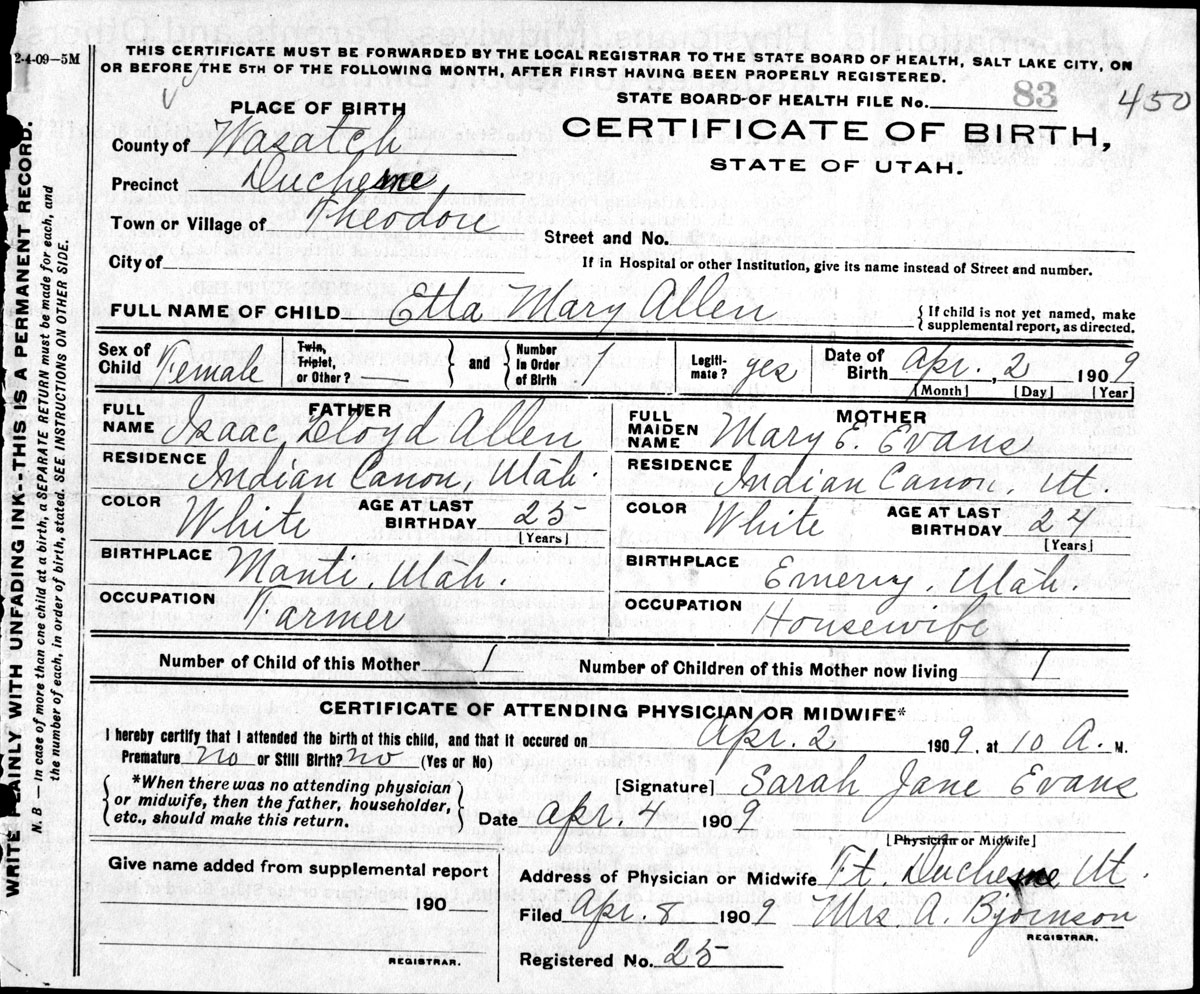 2-4-09—5M
THIS CERTIFICATE MUST BE FORWARDED BY THE LOCAL REGISTRAR TO THE STATE BOARD OF HEALTH, SALT LAKE CITY, ON
OR BEFORE THE 5TH OF THE FOLLOWING MONTH, AFTER FIRST HAVING BEEN PROPERLY REGISTERED.
STATE BOARD OF HEALTH FILE No. 83 450
PLACE OF BIRTH
CERTIFICATE OF BIRTH,
STATE OF UTAH.
County of Wasatch
Precinct Duchesne
Town or Village of Theodore
Street and No.
City of
If in Hospital or other Institution, give its name instead of Street and number.
FULL NAME OF CHILD Etta Mary Allen
{ If child is not yet named, make
supplemental report, as directed.
Sex of Child Female
Twin, Triplet, or Other? —
and
Number in Order of Birth 1
Legiti-mate? yes
Date of Birth Apr. , 2 1909
[Month] [Day] [Year]
FATHER
FULL NAME Isaac Lloyd Allen
RESIDENCE Indian Canon, Utah.
COLOR White
AGE AT LAST BIRTHDAY 25
[Years]
BIRTHPLACE Manti, Utah.
OCCUPATION Farmer
MOTHER
FULL MAIDEN NAME Mary E. Evans
RESIDENCE Indian Canon, Ut.
COLOR White
AGE AT LAST BIRTHDAY 24
[Years]
BIRTHPLACE Emery, Utah.
OCCUPATION Housewife
Number of Child of this Mother 1
Number of Children of this Mother now living 1
CERTIFICATE OF ATTENDING PHYSICIAN OR MIDWIFE*
I hereby certify that I attended the birth of this child, and that it occured on Apr. 2 1909, at 10 A. M.
Premature no or Still Birth? no (Yes or No)
{ *When there was no attending physician
or midwife, then the father, householder,
etc., should make this return. }
[Signature] Sarah Jane Evans
Date Apr. 4 1909
[Physician or Midwife]
Give name added from supplemental report
190
REGISTRAR.
Address of Physician or Midwife Ft. Duchesne Ut.
Filed Apr. 8 1909 Mrs A. Bjornson
REGISTRAR.
Registered No. 25
WRITE PLAINLY WITH UNFADING INK--THIS IS A PERMANENT RECORD.
N. B — In case of more than one child at a birth, a SEPARATE RETURN must be made for each, and
the number of each, in order of birth, stated. SEE INSTRUCTIONS ON OTHER SIDE.